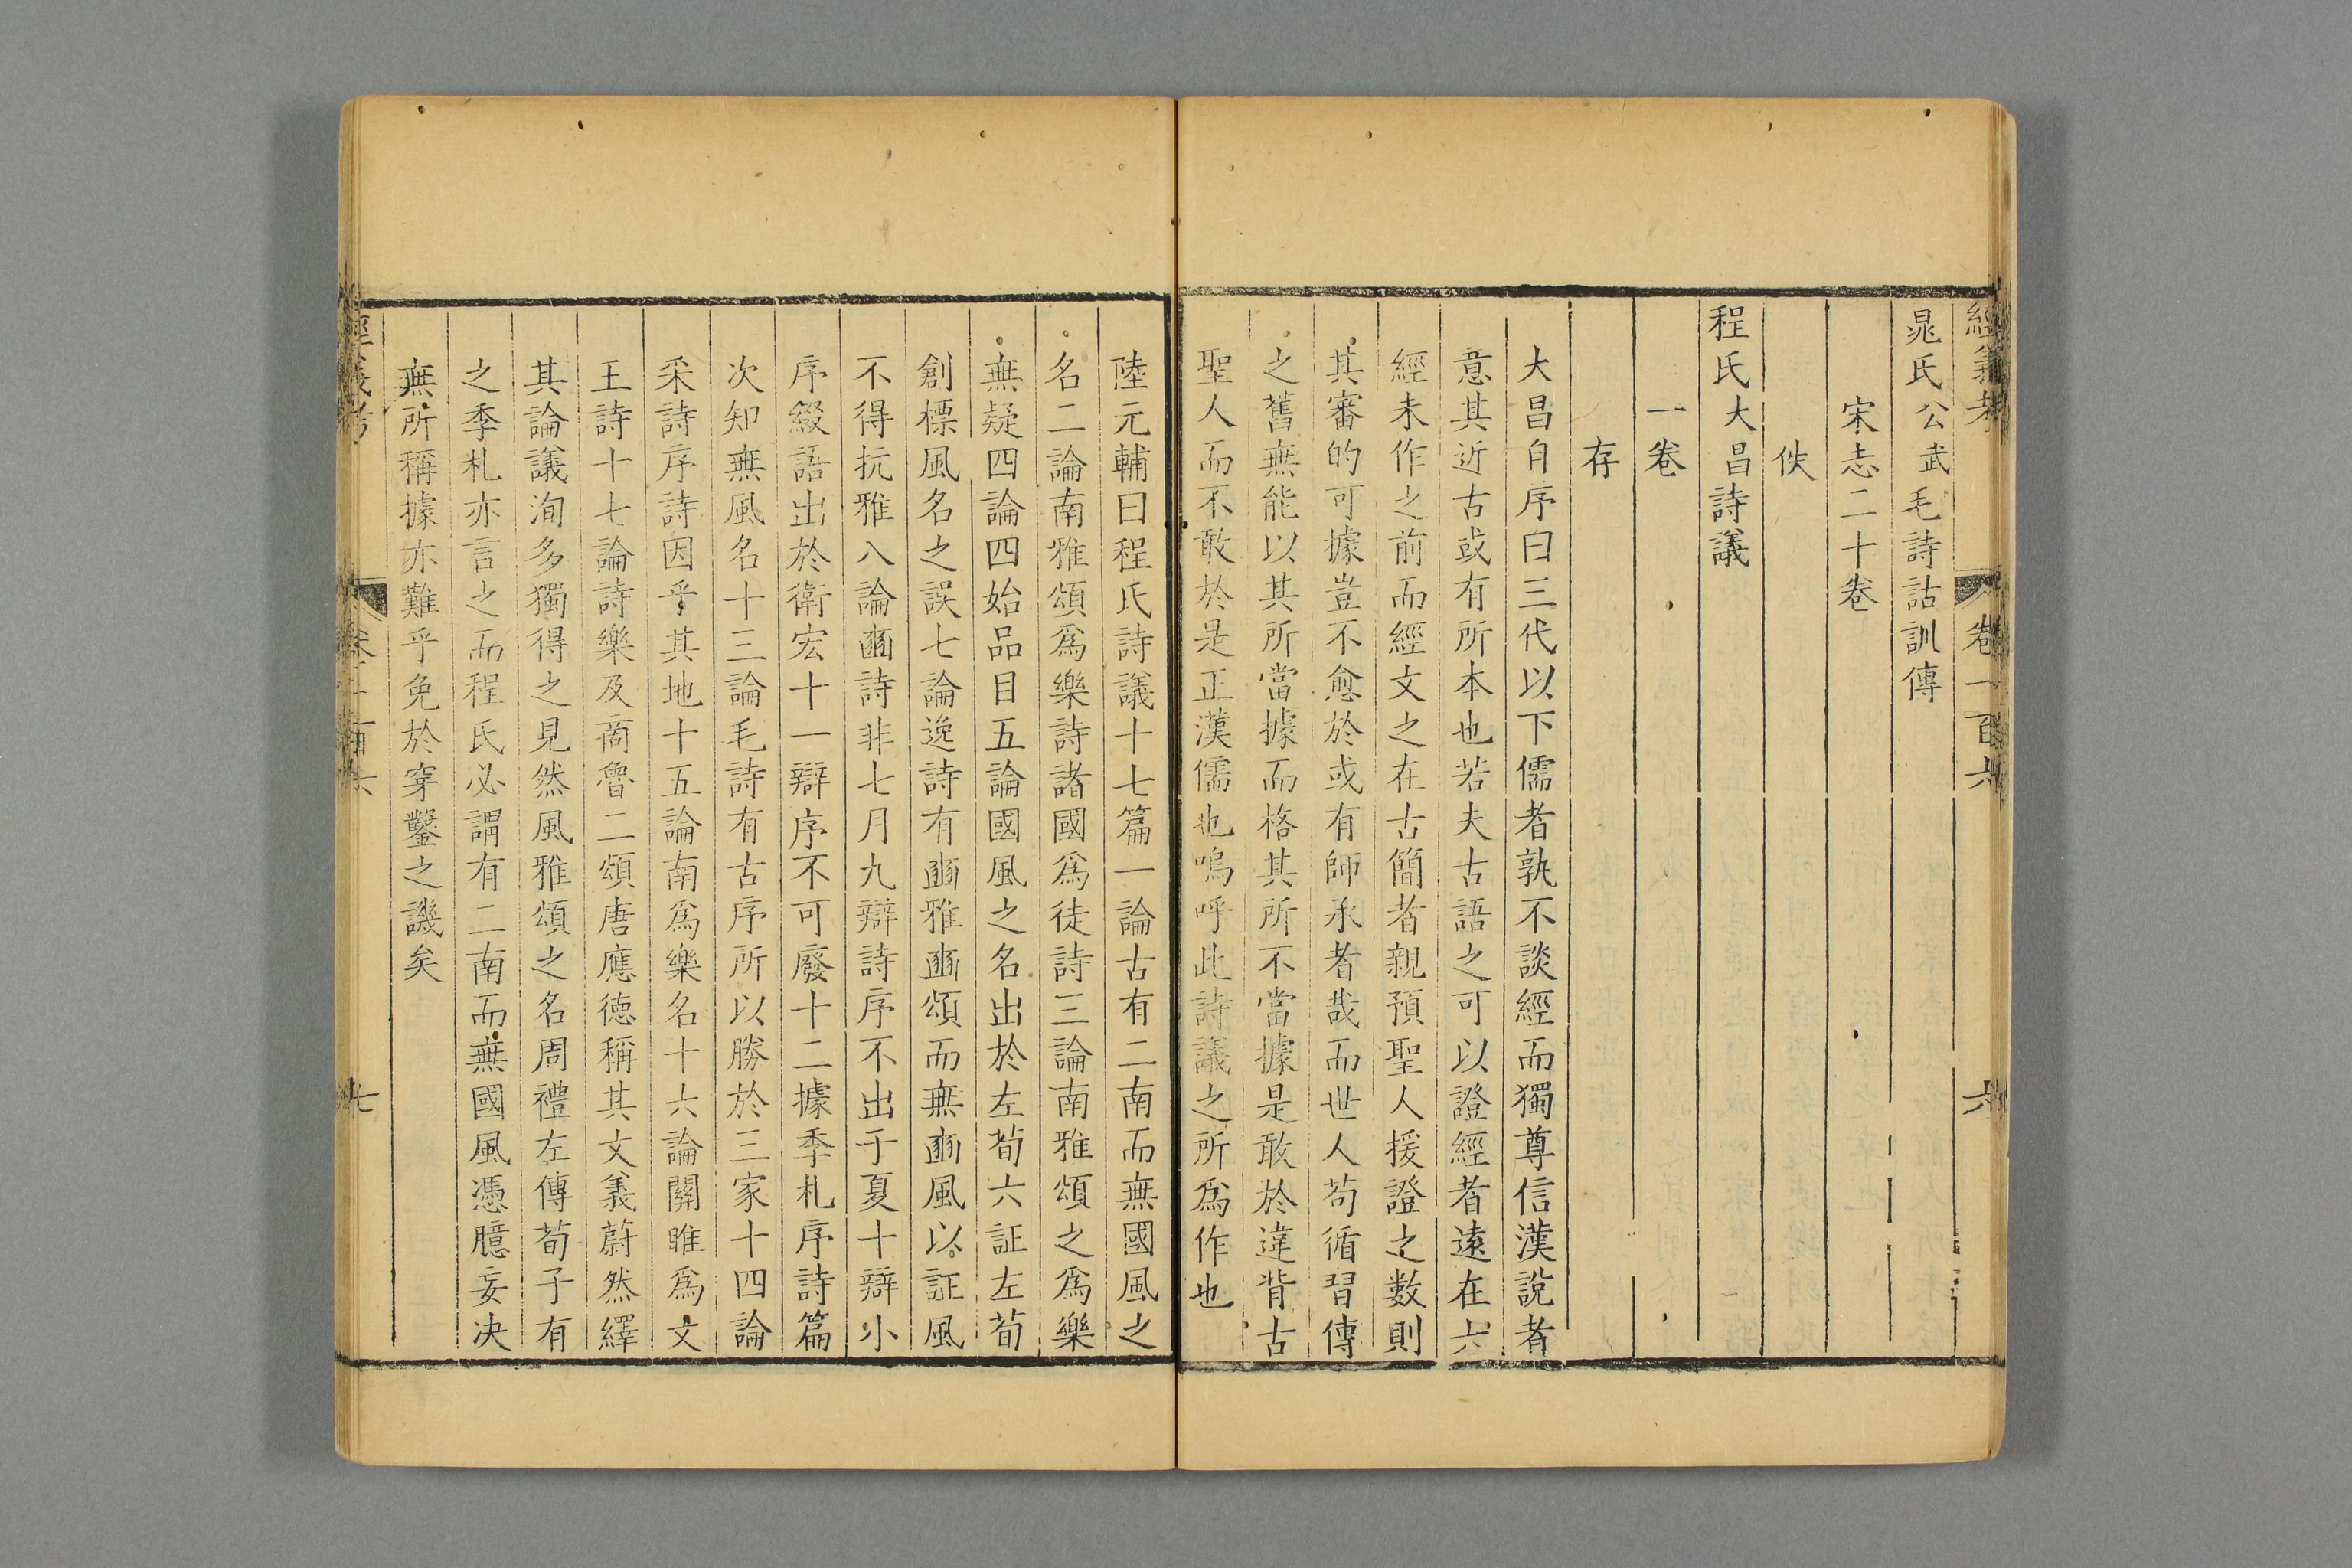 經義考 卷一百六 六
晁氏公武毛詩詁訓傳
宋志二十卷
佚
程氏大昌詩議
一卷
存
大昌自序曰三代以下儒者孰不談經而獨尊信漢說者
意其近古或有所本也若夫古語之可以證經者遠在六
經未作之前而經文之在古簡者親預聖人援證之數則
其審的可據豈不愈於或有師承者哉而世人苟循習傳
之舊無能以其所當據而格其所不當據是敢於違背古
聖人而不敢於是正漢儒也嗚呼此詩議之所爲作也
陸元輔曰程氏詩議十七篇一論古有二南而無國風之
名二論南雅頌爲樂詩諸國爲徒詩三論南雅頌之爲樂
無疑四論四始品目五論國風之名出於左荀六証左荀
創標風名之誤七論逸詩有豳雅豳頌而無豳風以証風
不得抗雅八論豳詩非七月九辯詩序不出于夏十辯小
序綴語出於衛宏十一辯序不可廢十二據季札序詩篇
次知無風名十三論毛詩有古序所以勝於三家十四論
采詩序詩因乎其地十五論南爲樂名十六論關雎爲文
王詩十七論詩樂及商魯二頌唐應德稱其文義蔚然繹
其論議洵多獨得之見然風雅頌之名周禮左傳荀子有
之季札亦言之而程氏必謂有二南而無國風憑臆妄决
無所稱據亦難乎免於穿鑿之譏矣
經義考 卷一百六 七